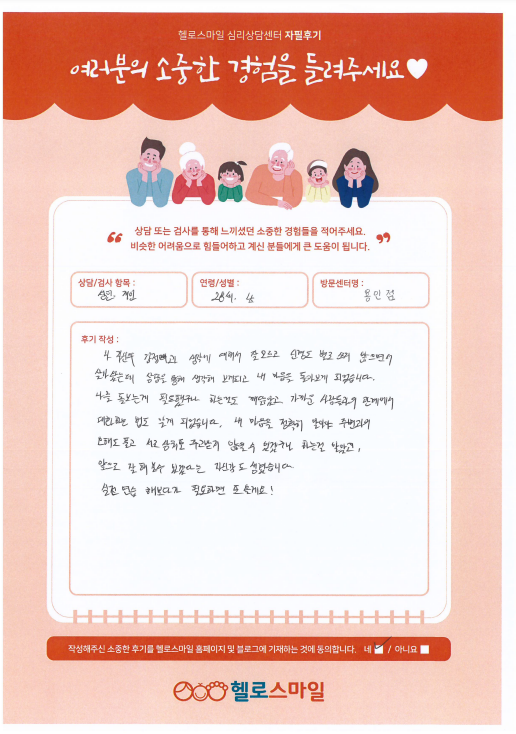 헬로스마일 심리상담센터 자필후기
여러분의 소중한 경험을 들려주세요
상담 또는 검사를 통해 느끼셨던 소중한 경험들을 적어주세요.
비슷한 어려움으로 힘들어하고 계신 분들에게 큰 도움이 됩니다.
상담/검사 항목 :
성인 개인
연령/성별 :
28세. 女
방문센터명 :
용인점
후기 작성 :
생각이 잘 모르고 신경도 별로 쓰지 않으면서
살아왔는데 상담을 통해 생각해 보게되고 내 마음을 돌아보게 되었습니다.
나를 돌보는게 필요했구나 하는것도 깨달았고 가까운 사람들과의 관계에서
대화하는 법도 알게 되었습니다. 내 마음을 정확히 알아야 주변과의
오해도 풀고 서로 상처도 주고받지 않을 수 있겠구나 하는걸 알았고,
앞으로 잘 해볼수 있겠다는 자신감도 생겼습니다.
실전 연습 해보다가 필요하면 또 올게요!
작성해주신 소중한 후기를 헬로스마일 홈페이지 및 블로그에 기재하는 것에 동의합니다. 네 / 아니요
헬로스마일